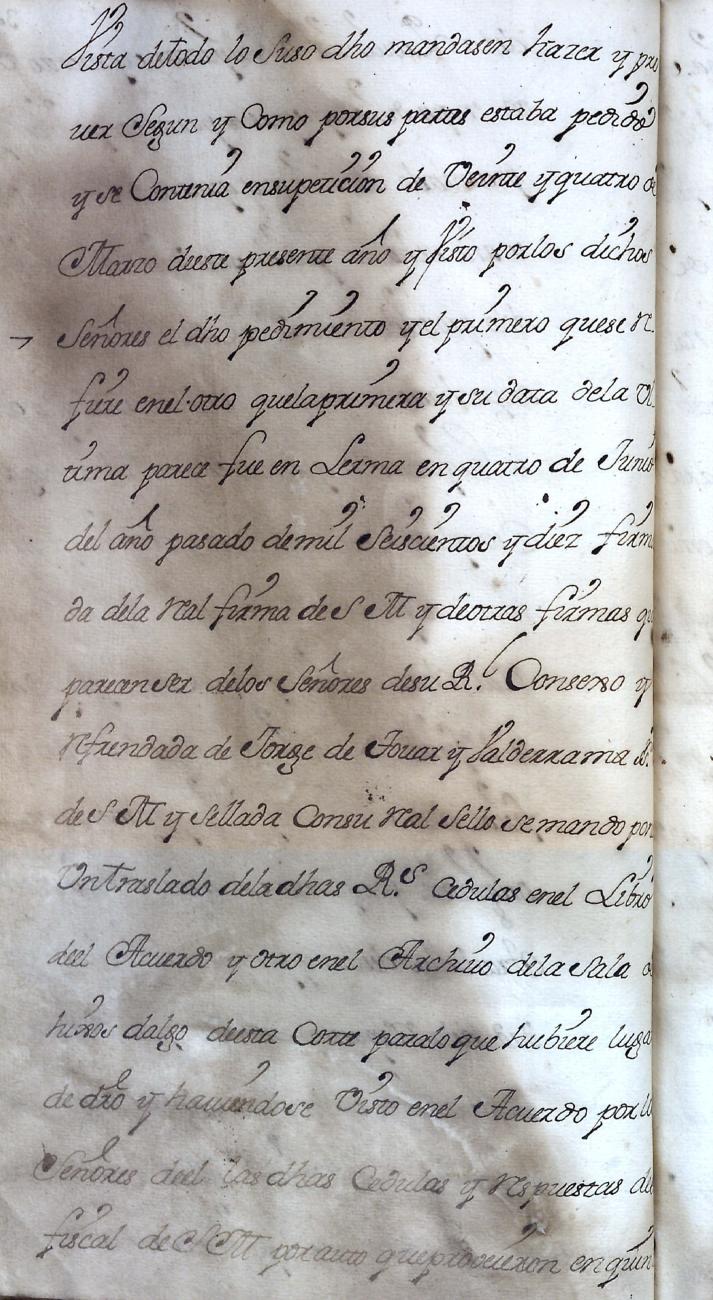 Vista detodo lo suso dho mandasen hazer y pro
uer Segun y Como porsus partes estaba pedido
y se Contenia ensupeticion de Veinte y quatro de
Marzo deeste presente año y Visto porlos dichos
Señores el dho pedimiento y el primero quese Re
fiere enel otro quelaprimera y su data dela Vl
tima parece fue en Lerma en quatro de Junio
del año pasado demil Seiscientos y diez firma
da dela Real firma de S M y deotras firmas qe
parecen ser delos Señores desu R.l Consexo y
Refrendada de Jorge de Touar y Valderrama S.
de S M y Sellada Consu Real Sello se mando pon
Un traslado deladhas R.s Cedulas enel Libro
deel Acuerdo y otro enel Archiuo dela Sala de
hixos dalgo deesta Corte paralo que hubiere luga
de dro y hauiendose Visto enel Acuerdo por lo
Señores deel las dhas Cedulas y Respuestas del
fiscal de S M por auto queproveieron en quin